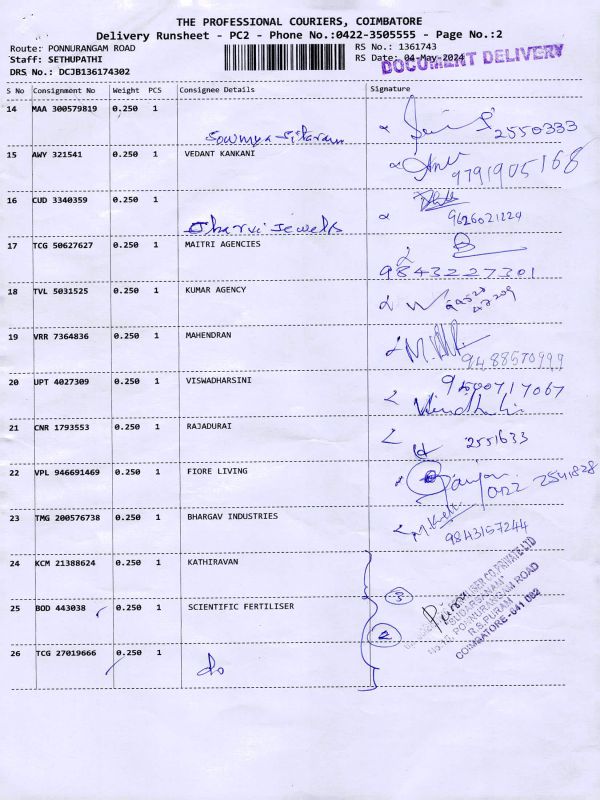 THE PROFESSIONAL COURIERS, COIMBATORE
Delivery Runsheet - PC2 - Phone No.:0422-3505555 - Page No.:2
Route: PONNURANGAM ROAD RS No.: 1361743
Staff: SETHUPATHI RS Date: 04-May-2024
DOCUMENT DELIVERY
DRS No.: DCJB136174302
S No Consignment No Weight PCS Consignee Details Signature
14 MAA 300579819 0.250 1
Sowmya Sitaram 2550333
15 AWY 321541 0.250 1 VEDANT KANKANI
9791905168
16 CUD 3340359 0.250 1
Jewells 9626021224
17 TCG 50627627 0.250 1 MAITRI AGENCIES
9843227301
18 TVL 5031525 0.250 1 KUMAR AGENCY
19 VRR 7364836 0.250 1 MAHENDRAN
9488570999
20 UPT 4027309 0.250 1 VISWADHARSINI
21 CNR 1793553 0.250 1 RAJADURAI
2551633
22 VPL 946691469 0.250 1 FIORE LIVING
0422 2541828
23 TMG 200576738 0.250 1 BHARGAV INDUSTRIES
9843157244
24 KCM 21388624 0.250 1 KATHIRAVAN
3
25 BOD 443038 0.250 1 SCIENTIFIC FERTILISER
2
26 TCG 27019666 0.250 1
do
PONNURANGAM ROAD
R.S.PURAM
COIMBATORE-641 002